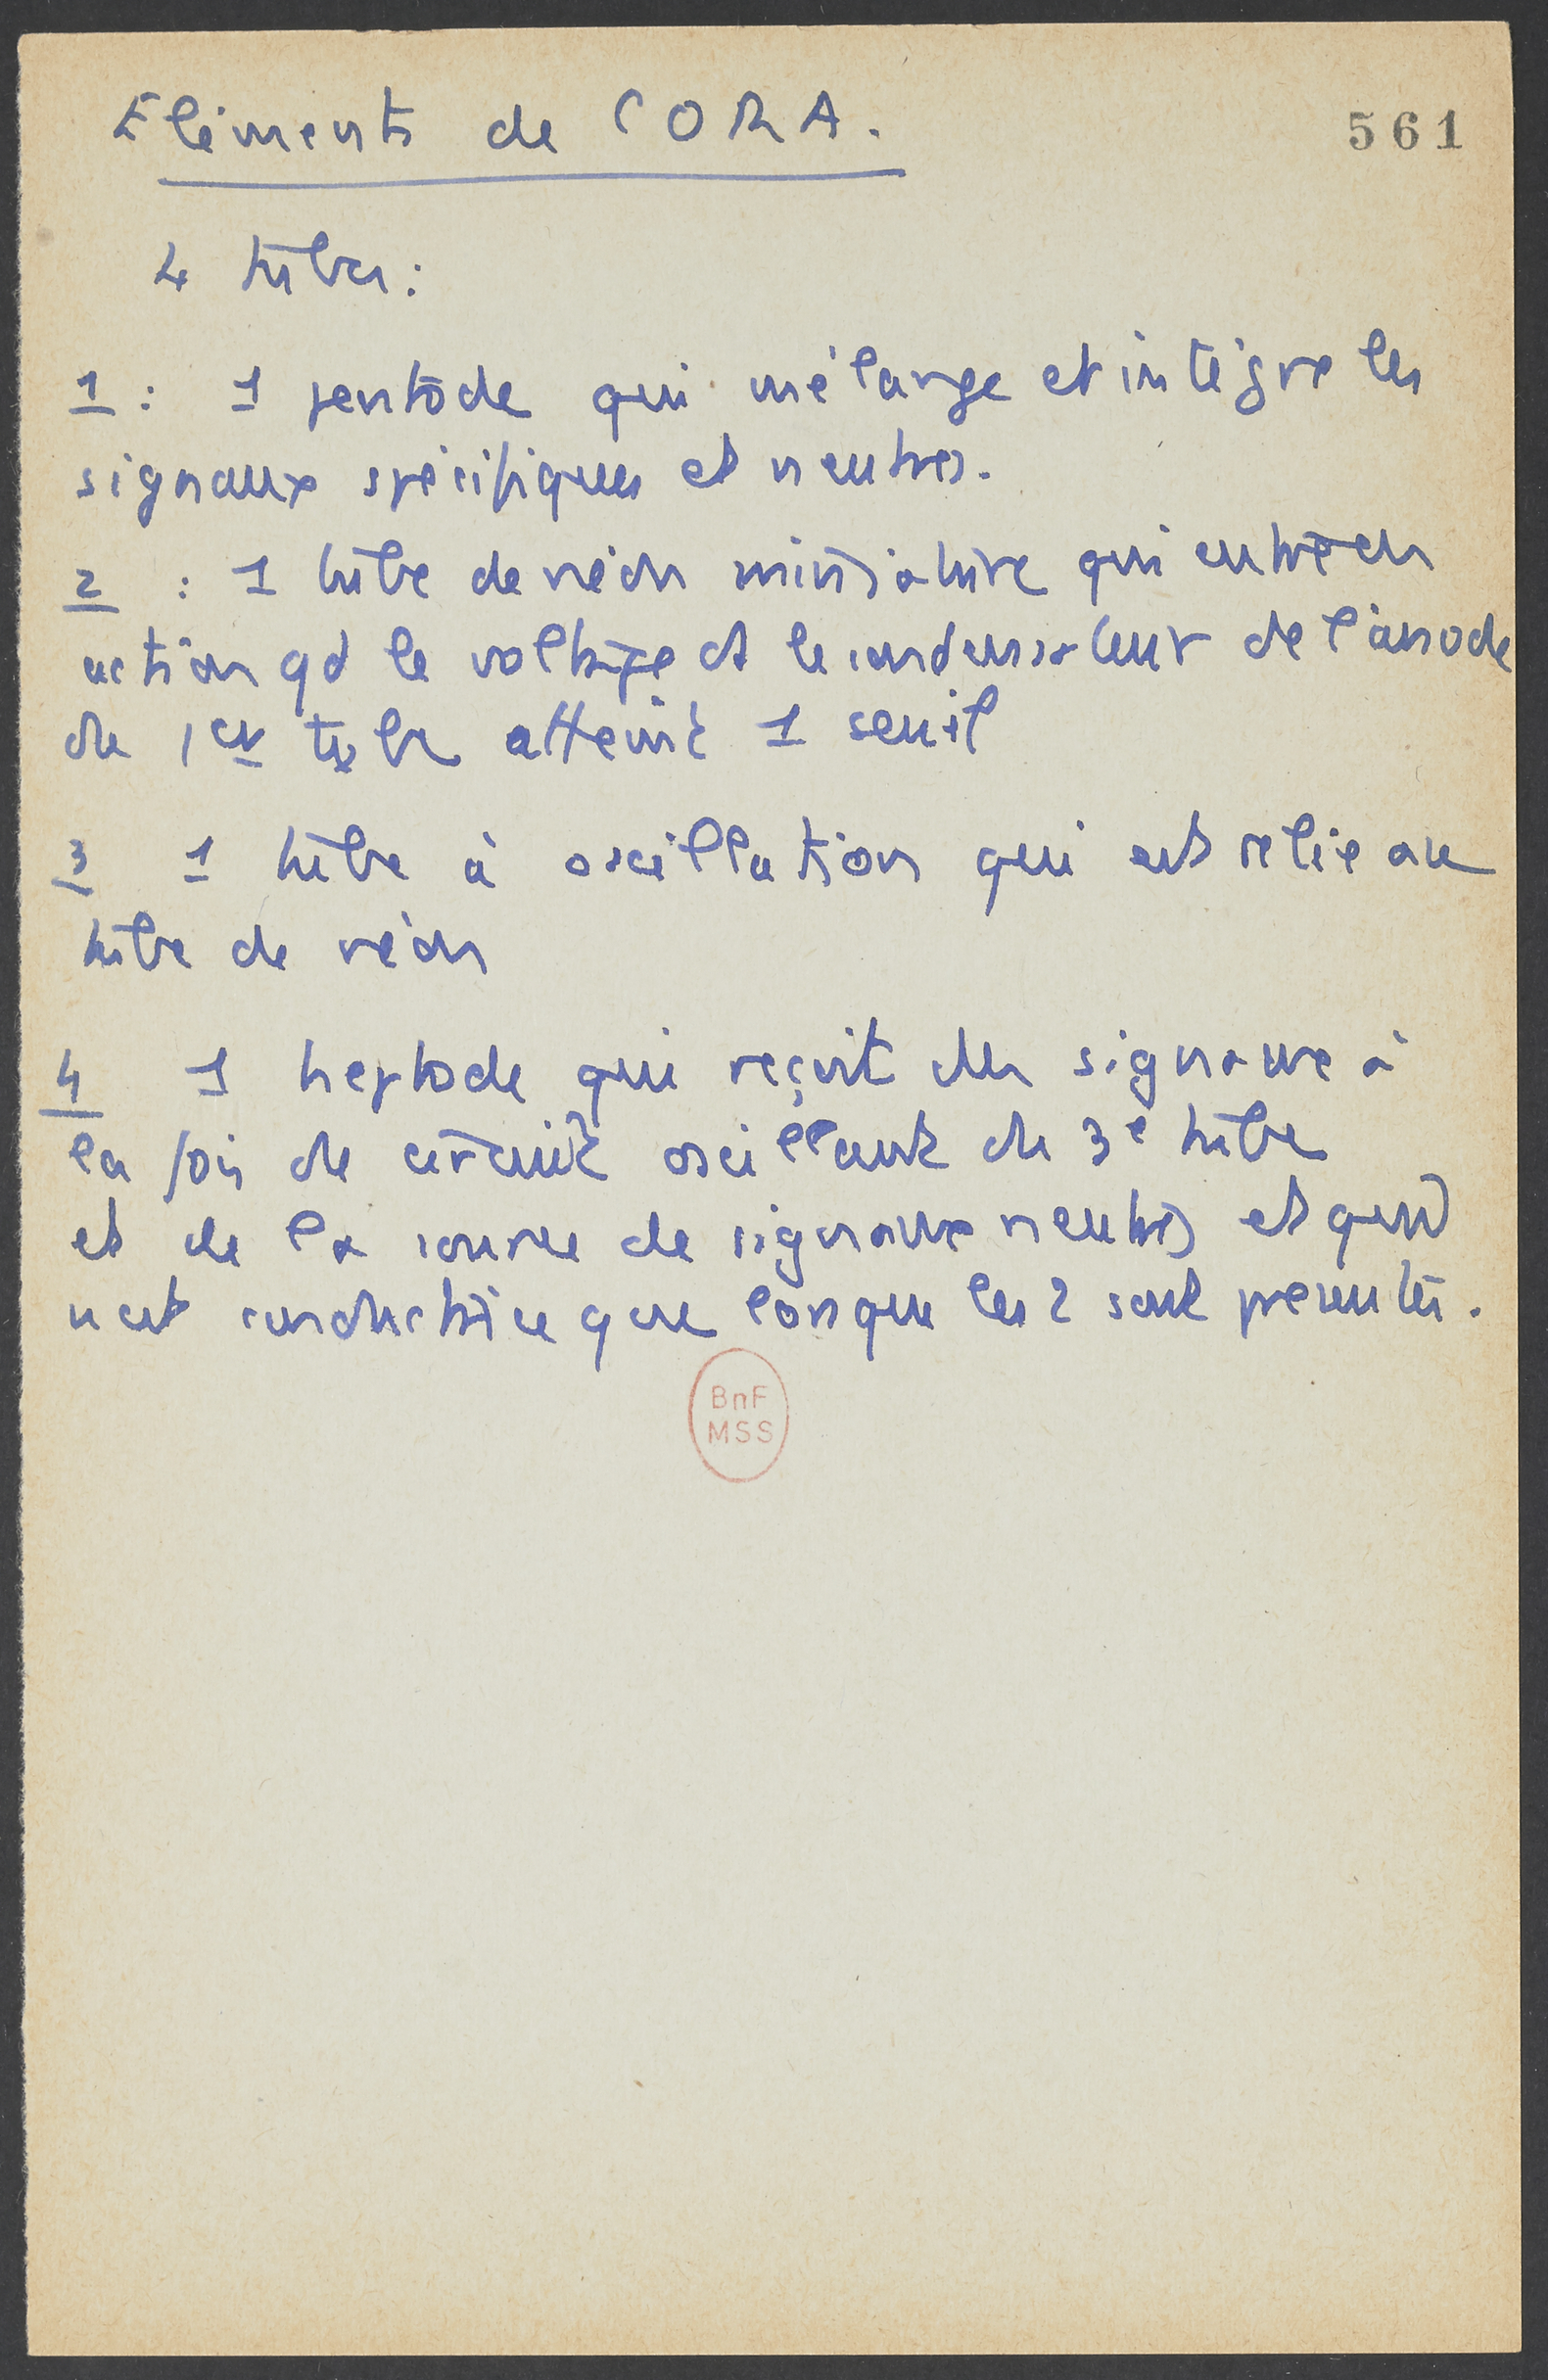 Eléments de CORA.
561
4 tubes :
1 : 1 pentode qui mélange et intègre les
signaux spécifiques et neutres.
2 : 1 tube de néon miniature qui entre en
action qd le voltage et le condensateur de l'anode
du 1er tube atteint 1 seuil
3 1 tube à oscillation qui est relié au
tube de néon
4 1 heptode qui reçoit des signaux à
la fois du circuit oscillant du 3e tube
et de la source de signaux neutres et qui
n'est conductrice que lorsque les 2 sont présentés.
BnF
MSS